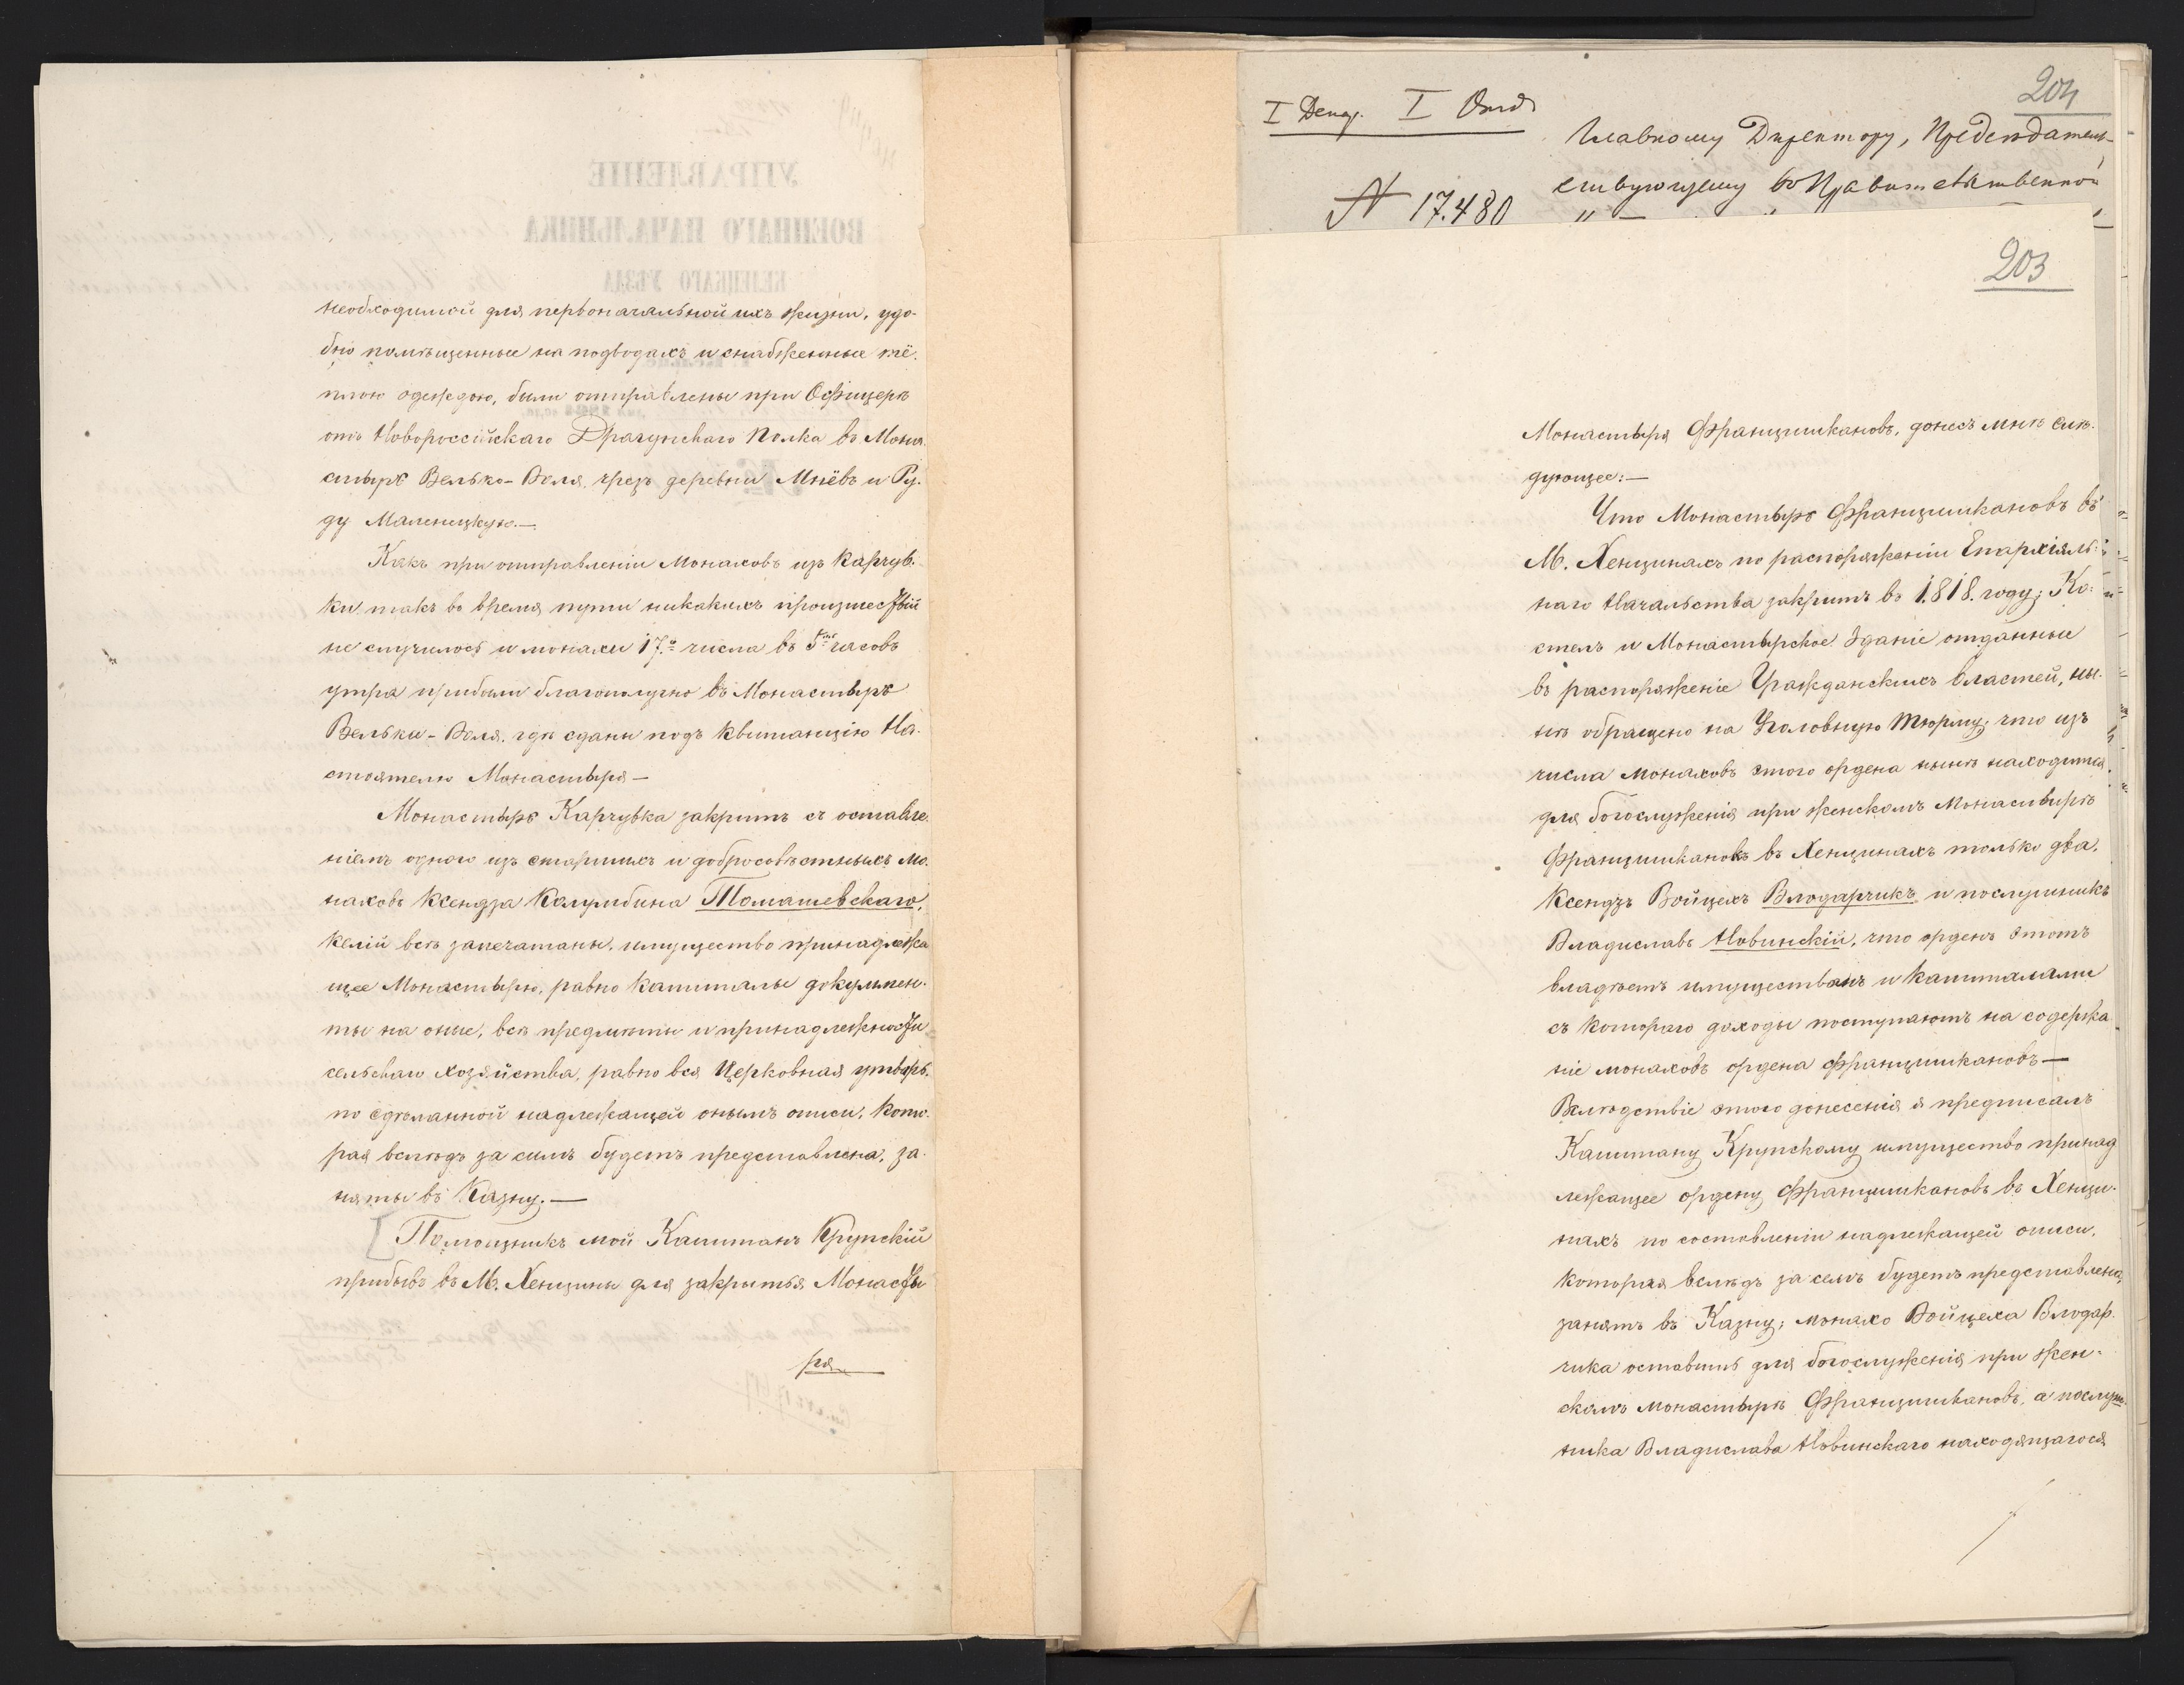 необходимой для первоначальной ихъ жизни, удо-
бно помѣщенные на подводахъ и снабженные тё-
плою одеждою, были отправлены при Офицерѣ
отъ Новороссійскаго Драгунскаго Полка въ Мона-
стырь Велько-Воля, чрезъ деревни Мнёвъ и Ру-
ду Маленицкую.—
Какъ при отправленіи Монаховъ изъ Карчув-
ки, такъ во время пути никакихъ происшествій
не случилось и монахи 17.го числа въ 5ть часовъ
утра прибыли благополучно въ Монастырь
Вельки-Воля, гдѣ сданы подъ квитанцію На-
стоятелю Монастыря —
Монастырь Карчувка закрытъ съ оставле-
ніемъ одного изъ старшихъ и добросовѣстныхъ мо-
наховъ Ксендза Колумбина Томашевскаго,
келіи всѣ запечатаны, имущество принадлежа
щее Монастырю, равно капиталы документы
ты на оные, всѣ предметы и принадлежности
сельскаго хозяйства, равно вся Церковная утварь,
по сдѣланной надлежащей онымъ описи, кото-
рая вслѣдъ за симъ будетъ представлена, за-
няты въ Казну.—
Помощникъ мой Капитанъ Крупскій
прибывъ въ М. Хенцины для закрытья Монасты
ря
УПРАВЛЕНІЕ
ВОЕННАГО НАЧАЛЬНИКА
КЕЛЕЦКАГО УѢЗДА
204
I Депар. I Отд
Главному Директору, Предсѣдатель-
ствующему въ Правительственной
№ 17.480
203
Монастыря Францишкановъ, донесъ мнѣ слѣ-
дующее:—
Что Монастырь Францишкановъ въ
М. Хенцинахъ по распоряженіи Епархіаль-
наго Начальства закрытъ въ 1.818. году; Ко-
стелъ и Монастырское Зданіе отданные
въ распоряженіе Гражданскихъ властей, ны-
нѣ обращено на Уголовную Тюрму; что изъ
числа монаховъ этого ордена нынѣ находится
для богослуженія при женскомъ монастырѣ
Францишкановъ въ Хенцинахъ только два,
Ксендзъ Войцехъ Влодарчикъ и послушникъ
Владиславъ Новинскій, что орденъ этотъ
владѣетъ имуществомъ и капиталами
съ котораго доходы поступаютъ на содержа
ніе монаховъ ордена Францишкановъ—
Вслѣдствіе этого донесенія я предписалъ
Капитану Крупскому имущество принад
лежащее ордену Францишкановъ въ Хенци-
нахъ по составленіи надлежащей описи,
которая вслѣдъ за семъ будетъ представлена,
занять въ Казну; монахо Войцеха Влодар-
чика оставить для богослуженія при жен-
скомъ монастырѣ Францишкановъ, а послуш-
ника Владислава Новинскаго находящагося